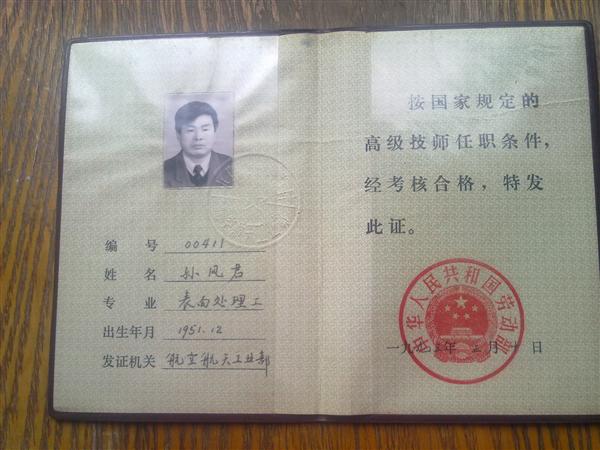 编 号 00411
姓 名 孙凤君
专 业 表面处理工
出生年月 1951.12
发证机关 航空航天工业部
按国家规定的
高级技师任职条件,
经考核合格，特发
此证。
中华人民共和国劳动部
一九九 年 月 日